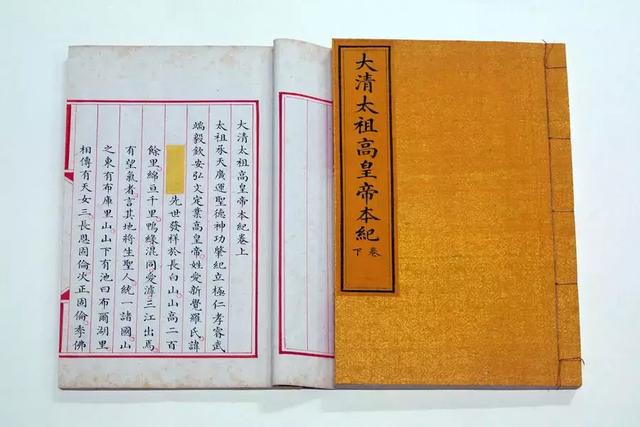 大清太祖高皇帝本紀
卷下
大清太祖高皇帝本紀卷上
太祖承天廣運聖德神功肇紀立極仁孝睿武
端毅欽安弘文定業高皇帝姓愛新覺羅氏諱
先世發祥於長白山山高二百
餘里綿亘千里鴨綠混同愛滹三江出焉
有望氣者言其地將生聖人統一諸國山
之東有布庫里山山下有池曰布爾湖里
相傳有天女三長恩固倫次正固倫季佛